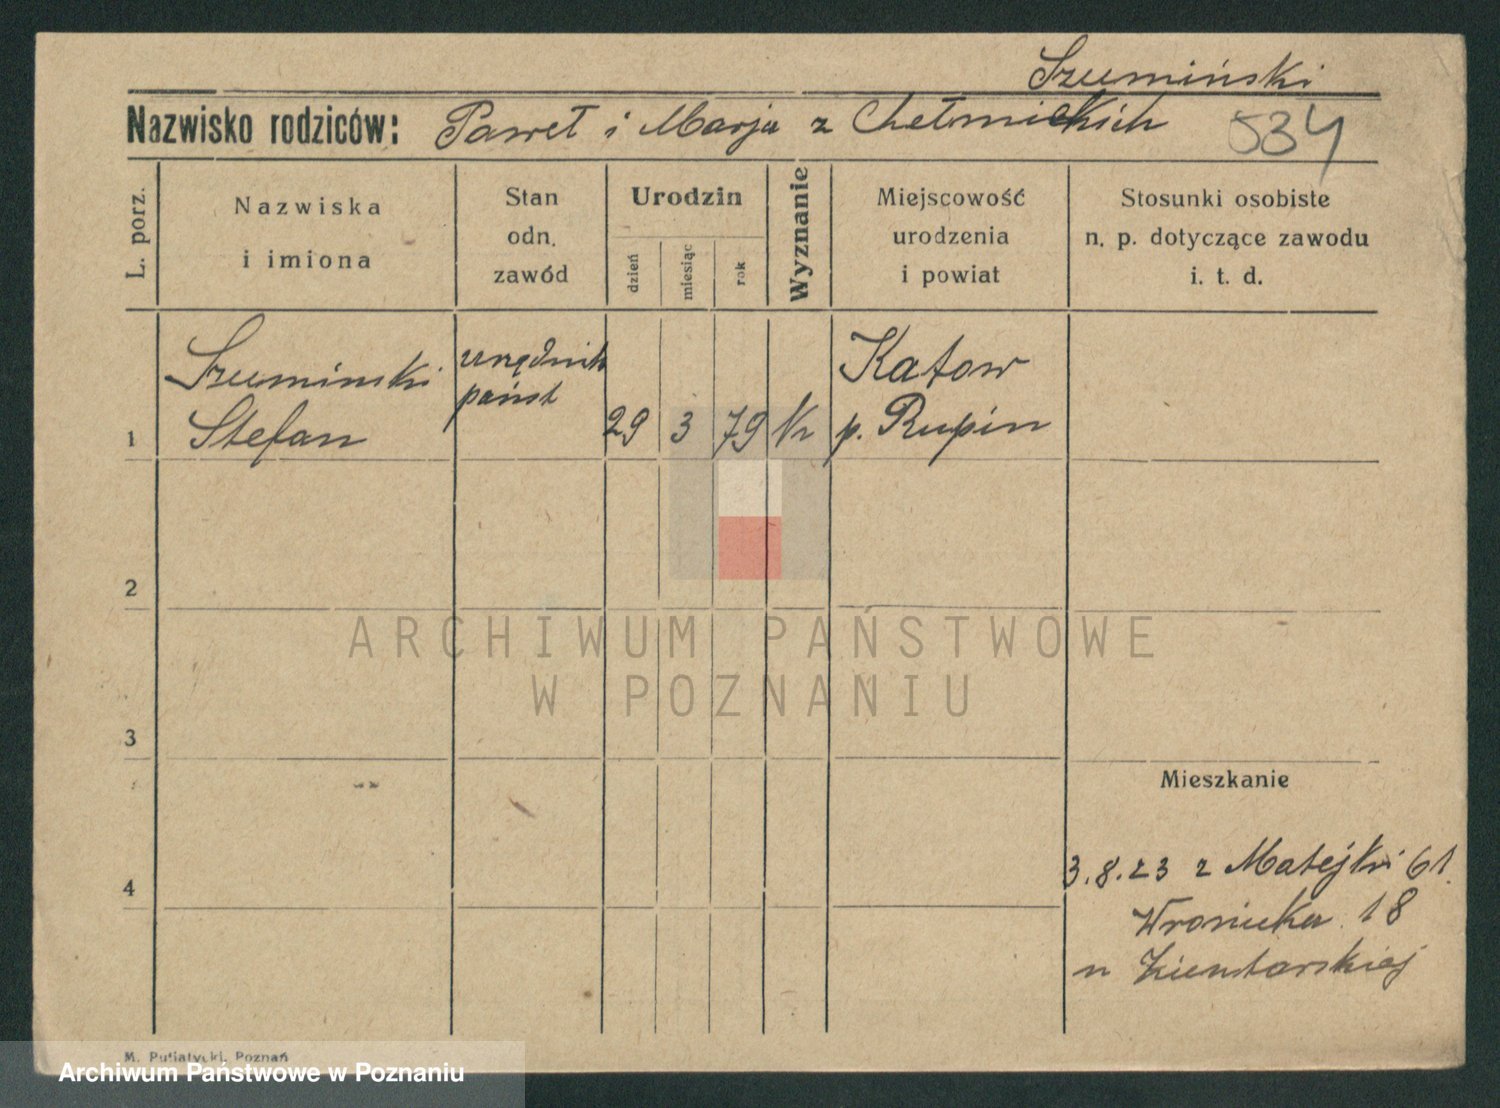 Szumiński
Nazwisko rodziców: Paweł i Marja z Chełmickich 534
L. porz.
Nazwiska
i imiona
Stan
odn.
zawód
Urodzin
dzień
miesiąc
rok
Wyznanie
Miejscowość
urodzenia
i powiat
Stosunki osobiste
n. p. dotyczące zawodu
i. t. d.
1
Szuminski
Stefan
urzędnik
państ
29 3 79
Katow
p. Rupin
2
ARCHIWUM PAŃSTWOWE
W POZNANIU
3
Mieszkanie
4
3.8.23 z Matejki 61.
Wroniecka 18
u
M. Putiatycki, Poznań
Archiwum Państwowe w Poznaniu